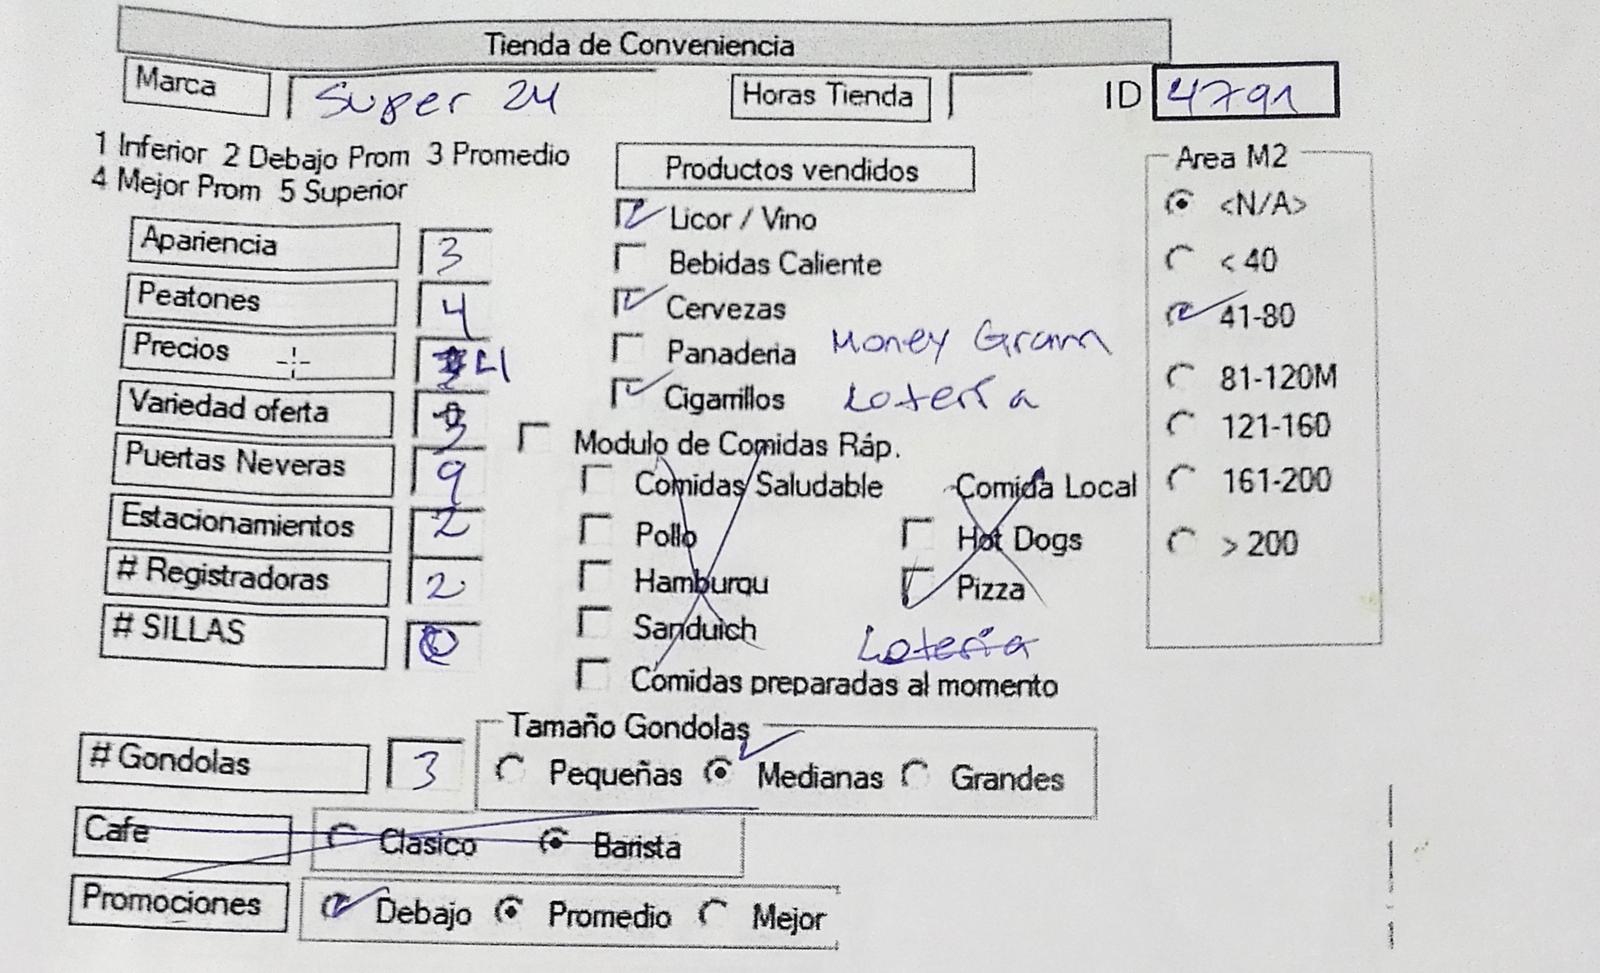 Tienda de Conveniencia
Marca Super 24 Horas Tienda ID 4791
1 Inferior 2 Debajo Prom 3 Promedio
4 Mejor Prom 5 Superior
Apariencia 3
Peatones 4
Precios 4
Variedad oferta 3
Puertas Neveras 9
Estacionamientos 2
# Registradoras 2
# SILLAS 0
Productos vendidos
Licor / Vino
Bebidas Caliente
Cervezas
Panaderia Money Gram
Cigarrillos Lotería
Modulo de Comidas Ráp.
Comidas Saludable Comida Local
Pollo Hot Dogs
Hamburqu Pizza
Sanduich Lotería
Comidas preparadas al momento
Area M2
<N/A>
< 40
41-80
81-120M
121-160
161-200
> 200
# Gondolas 3
Tamaño Gondolas
Pequeñas Medianas Grandes
Cafe Clasico Barista
Promociones Debajo Promedio Mejor